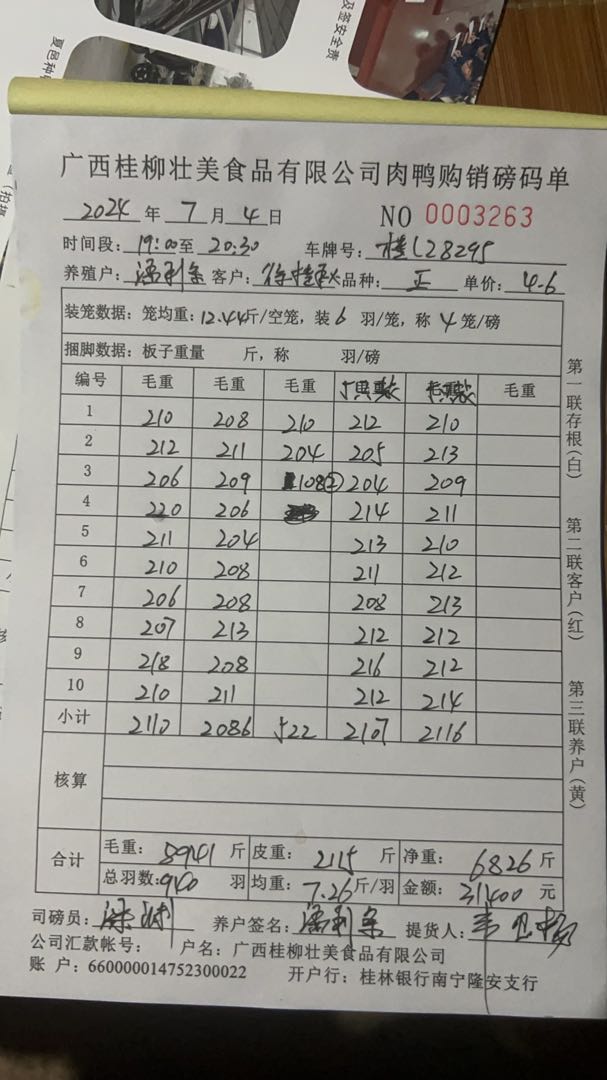 及签安全责
夏邑种
广西桂柳壮美食品有限公司肉鸭购销磅码单
2024 年 7 月 4 日 NO 0003263
时间段: 19:00 至 20:30 车牌号: 桂L28295
养殖户: 潘利条 客户: 徐桂秋 品种: 正 单价: 4.6
装笼数据: 笼均重: 12.44斤/空笼, 装 6 羽/笼, 称 4 笼/磅
捆脚数据: 板子重量 斤, 称 羽/磅
编号 毛重 毛重 毛重 毛重
1 210 208 210 212 210
2 212 211 204 205 213
3 206 209 108② 204 209
4 220 206 214 211
5 211 204 213 210
6 210 208 211 212
7 206 208 208 213
8 207 213 212 212
9 218 208 216 212
10 210 211 212 214
小计 2110 2086 522 2107 2116
核算
合计 毛重: 8941 斤 皮重: 2115 斤 净重: 6826 斤
总羽数: 940 羽 均重: 7.26 斤/羽 金额: 31400 元
司磅员: 养户签名: 潘利条 提货人:
公司汇款帐号: 户名: 广西桂柳壮美食品有限公司
账 户: 660000014752300022 开户行: 桂林银行南宁隆安支行
第一联存根(白)
第二联客户(红)
第三联养户(黄)